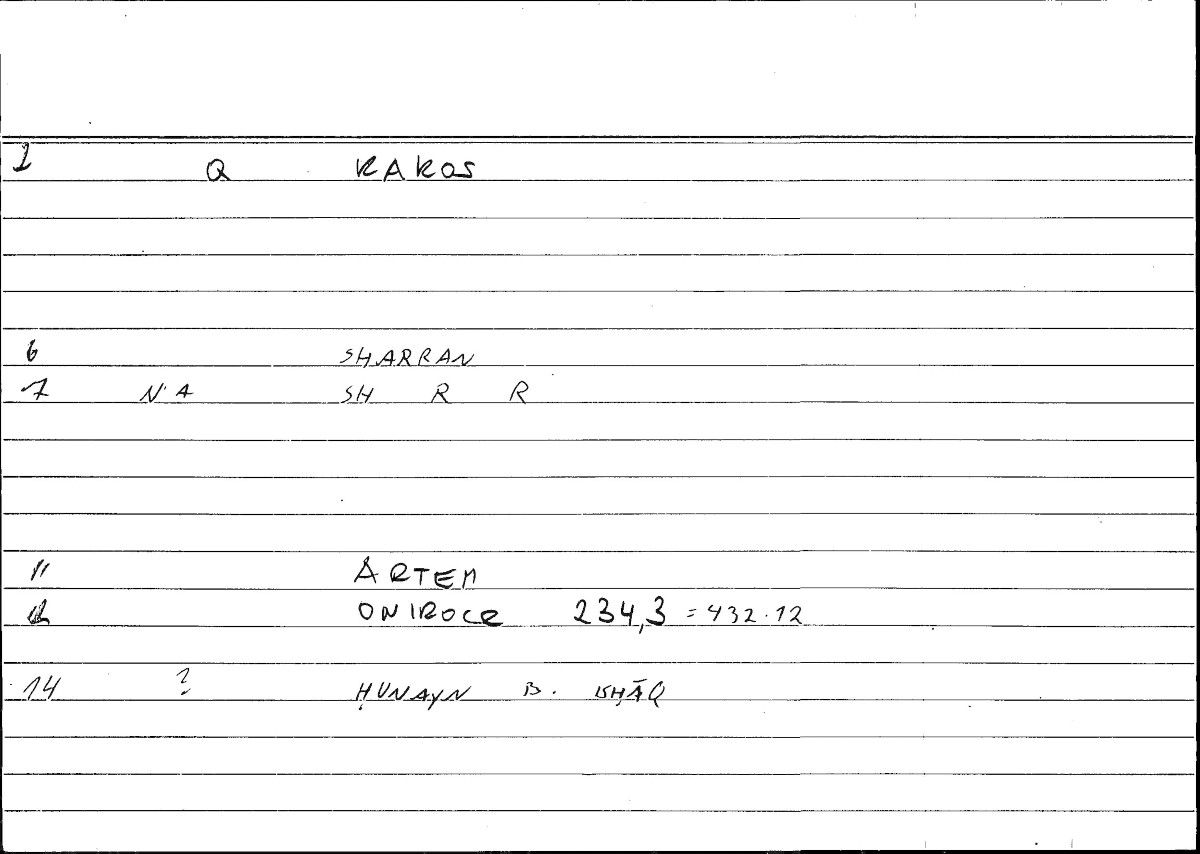 1 Q KAKOS
6 SHARRAN
7 N'A SH R R
11 ARTEM
12 ONIROCR 234,3 = 432.12
14 ? ḤUNAYN B. ISḤĀQ